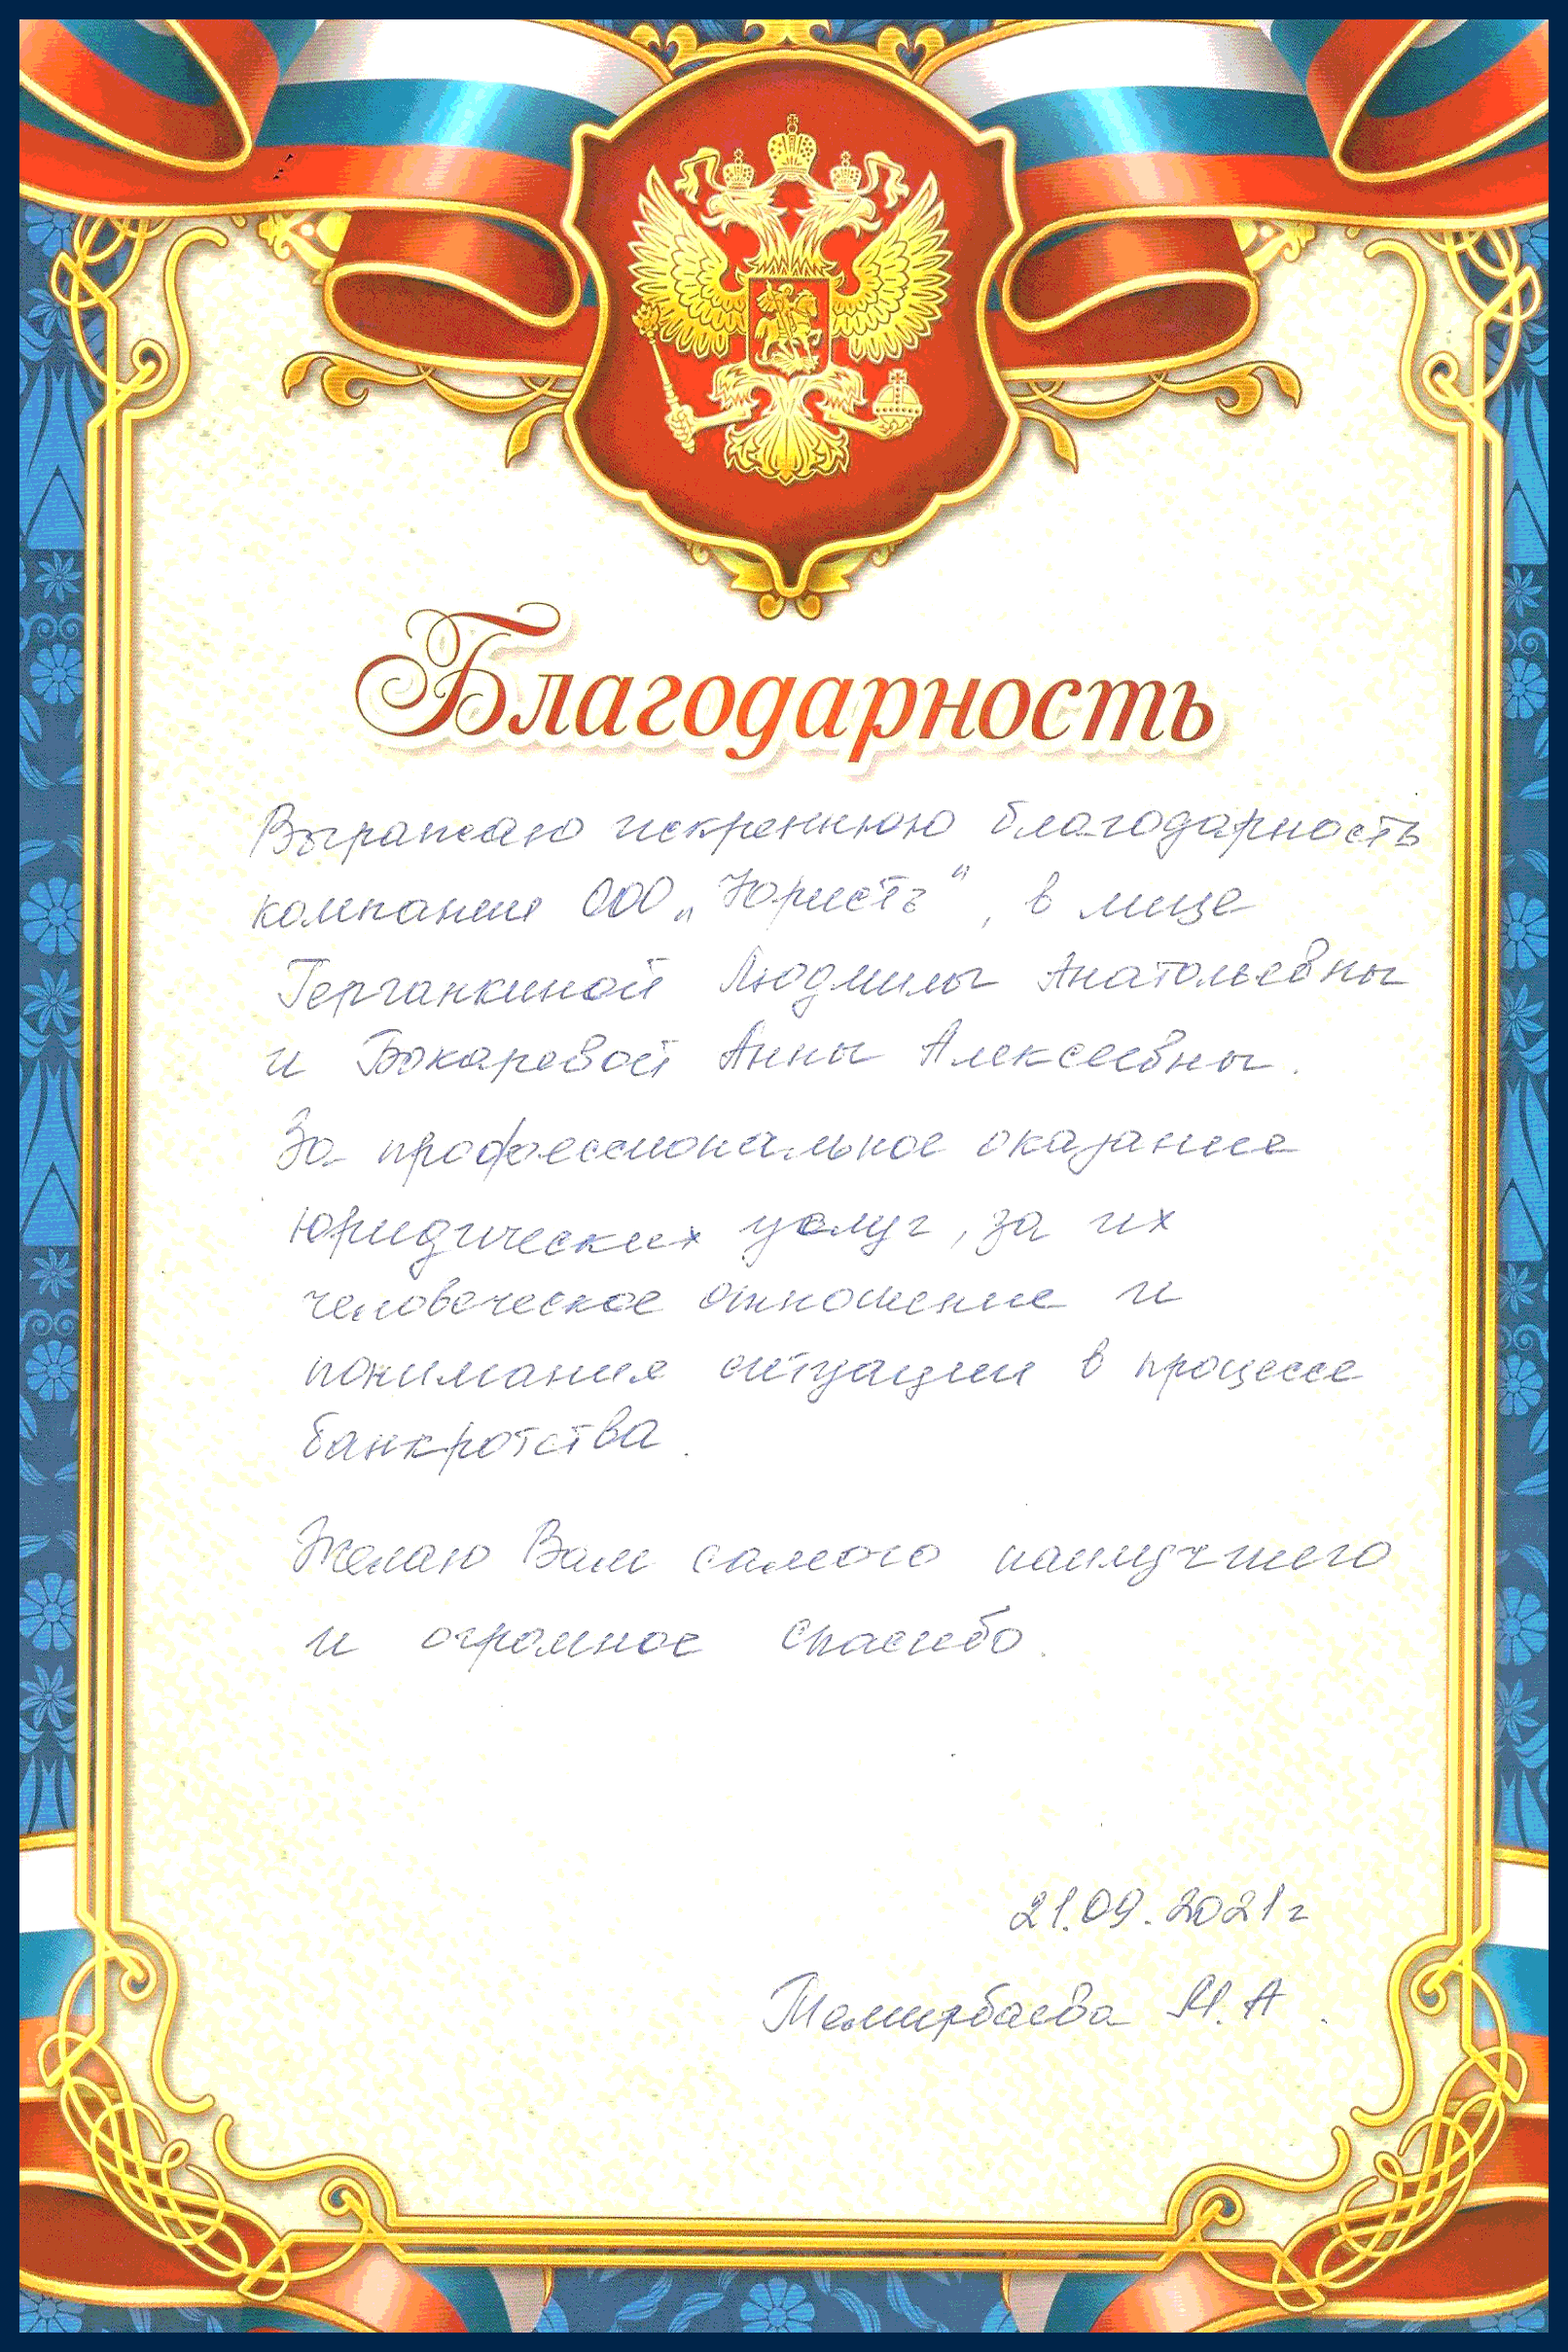 Благодарность
Выражаю искреннюю благодарность
компании ООО „Юристъ“, в лице
Герганкиной Людмилы Анатольевны
и Бокаревой Анны Алексеевны.
За профессиональное оказание
юридических услуг, за их
человеческое отношение и
понимания ситуации в процессе
банкротства.
Желаю Вам самого наилучшего
и огромное спасибо.
21.09.2021г
Темирбаева М.А.